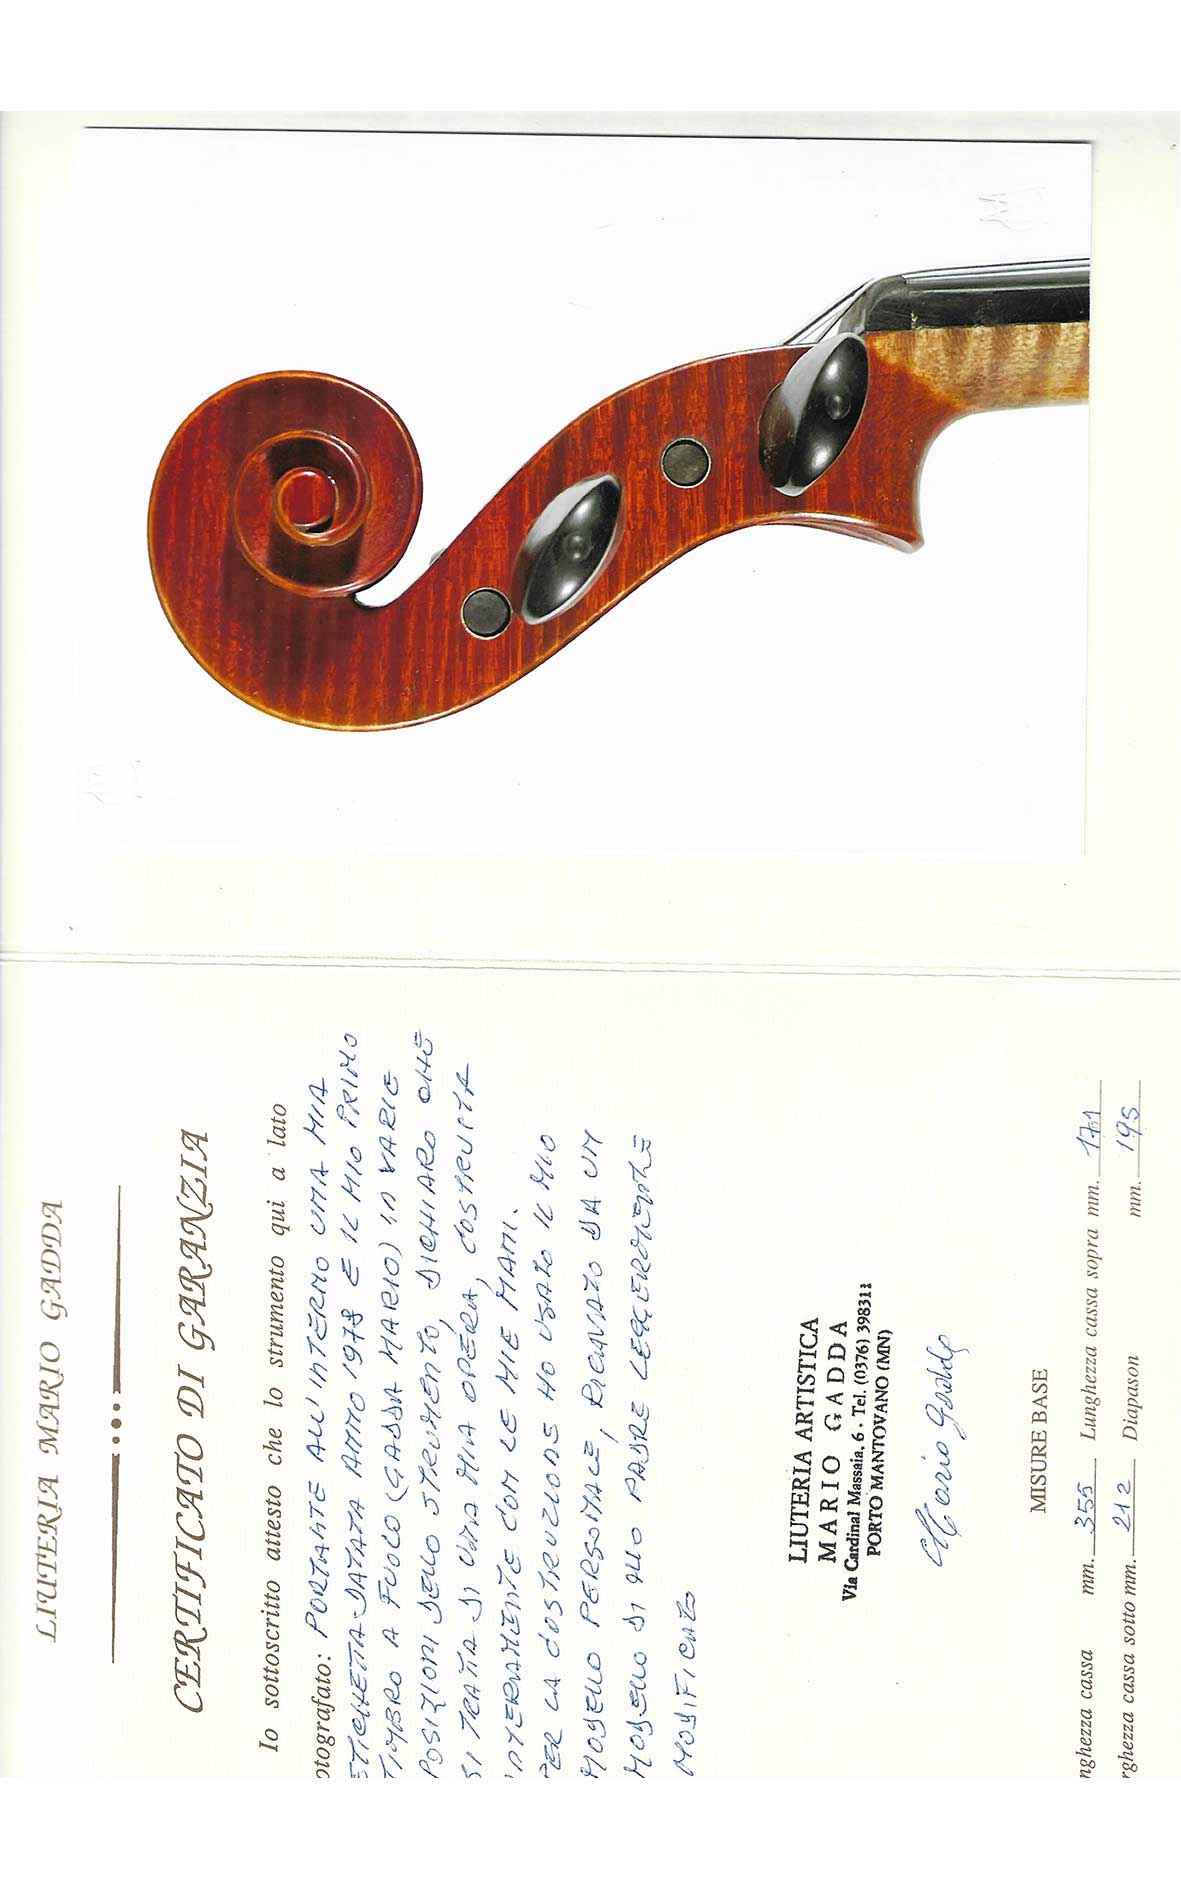 LIUTERIA MARIO GADDA
CERTIFICATO DI GARANZIA
Io sottoscritto attesto che lo strumento qui a lato
otografato: PORTANTE ALL'INTERNO UNA MIA
ETICHETTA DATATA ANNO 1978 E IL MIO PRIMO
TIMBRO A FUOCO (GADDA MARIO) IN VARIE
POSIZIONI DELLO STRUMENTO, DICHIARO CHE
SI TRATTA DI UNA MIA OPERA, COSTRUITA
INTERAMENTE CON LE MIE MANI.
PER LA COSTRUZIONE HO USATO IL MIO
MODELLO PERSONALE, RICAVATO DA UN
MODELLO DI MIO PADRE LEGGERMENTE
MODIFICATO
LIUTERIA ARTISTICA
MARIO GADDA
Via Cardinal Massaia, 6 - Tel. (0376) 398311
PORTO MANTOVANO (MN)
Mario Gadda
MISURE BASE
nghezza cassa mm. 355 Lunghezza cassa sopra mm. 171
rghezza cassa sotto mm. 212 Diapason mm. 195